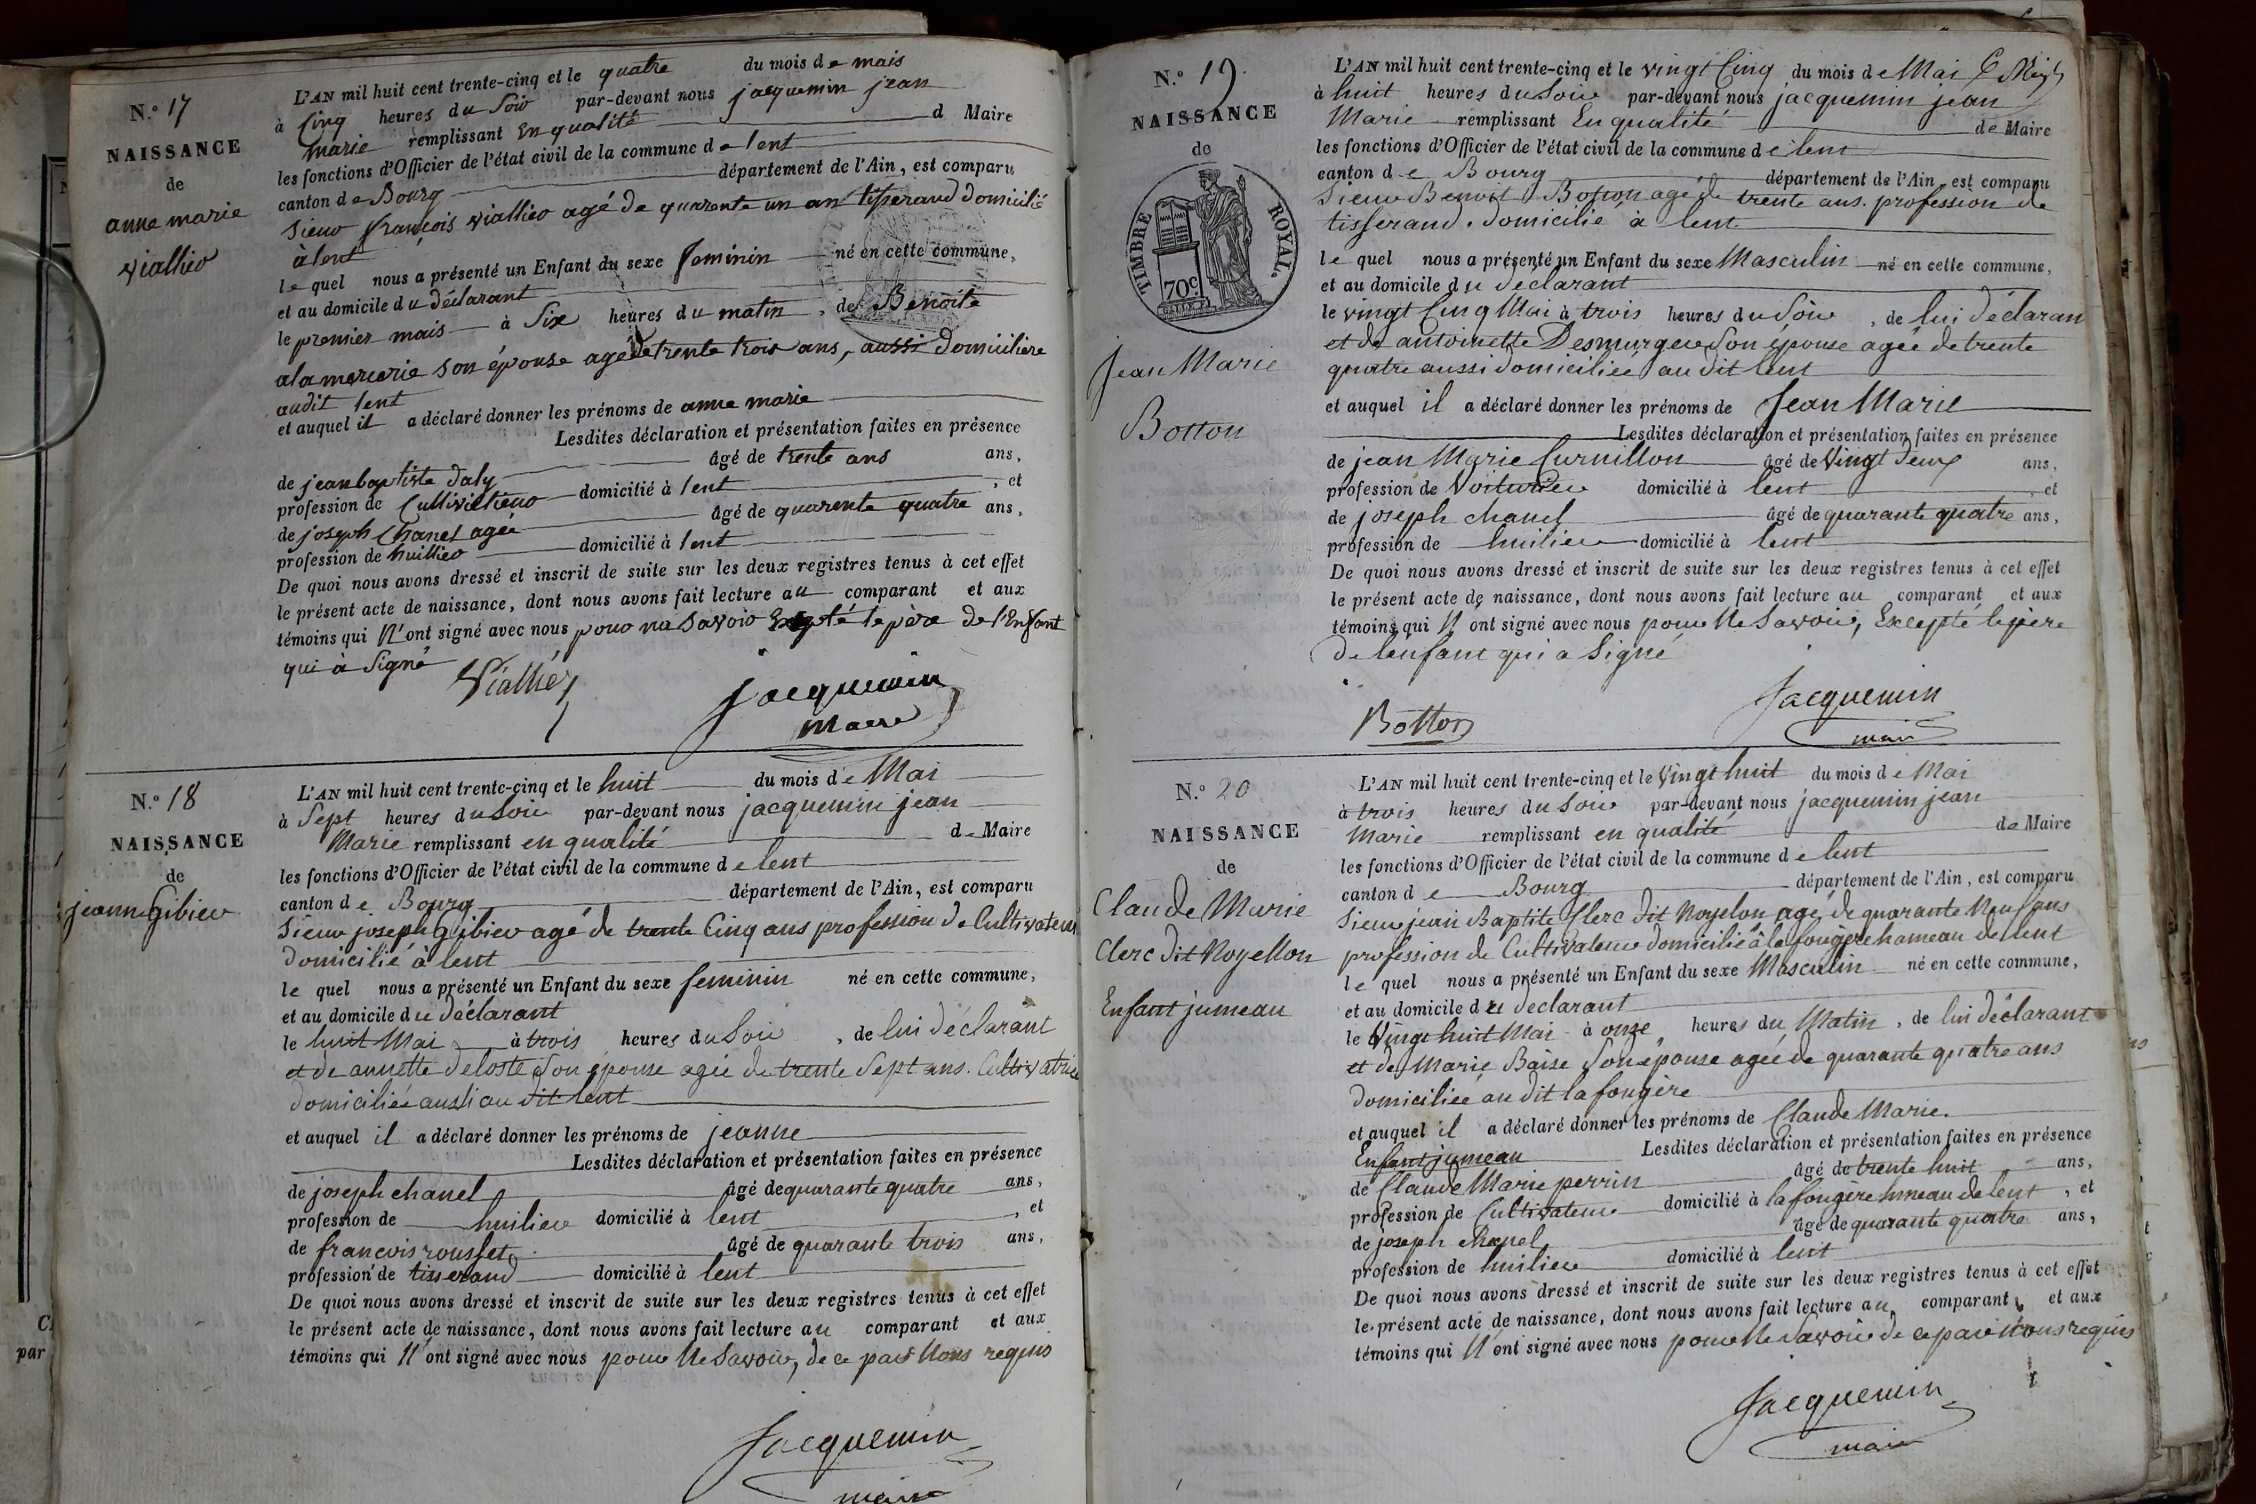 N.º 17
NAISSANCE
de
anne marie
viallier
L'AN mil huit cent trente-cinq et le quatre du mois de mais
à Cinq heures du Soir par-devant nous jacquemin jean
marie remplissant En qualité d Maire
les fonctions d'Officier de l'état civil de la commune de lent
canton de Bourg département de l'Ain, est comparu
Sieur françois viallier agé de quarente un an tisserand domicilié
à lent
le quel nous a présenté un Enfant du sexe feminin né en cette commune,
et au domicile du déclarant
le premier mais à Six heures du matin, de Benoite
alamercerie son épouse agé de trente trois ans, aussi domiciliere
audit lent
et auquel il a déclaré donner les prénoms de anne marie
Lesdites déclaration et présentation faites en présence
de jean baptiste daly âgé de trente ans ans,
profession de Cultivateur domicilié à lent, et
de joseph Chanel agée âgé de quarente quatre ans,
profession de huillier domicilié à lent
De quoi nous avons dressé et inscrit de suite sur les deux registres tenus à cet effet
le présent acte de naissance, dont nous avons fait lecture au comparant et aux
témoins qui N'ont signé avec nous pour na Savoir Exepté le père de l'Enfant
qui à Signé
Viallier
Jacquemin
Maire
N.º 18
NAISSANCE
de
jeanne Gibier
L'AN mil huit cent trente-cinq et le huit du mois de Mai
à Sept heures du Soir par-devant nous jacquemin jean
Marie remplissant en qualité de Maire
les fonctions d'Officier de l'état civil de la commune de lent
canton de Bourg département de l'Ain, est comparu
Sieur joseph Gibier agé de trente Cinq ans profession de Cultivateur
domicilié à lent
le quel nous a présenté un Enfant du sexe feminin né en cette commune,
et au domicile du déclarant
le huit Mai à trois heures du Soir, de lui déclarant
et de annette deloste Son épouse agée de trente Sept ans. Cultivatrice
domiciliée aussi au dit lent
et auquel il a déclaré donner les prénoms de jeanne
Lesdites déclaration et présentation faites en présence
de joseph chanel âgé de quarante quatre ans,
profession de huilier domicilié à lent, et
de francois rousset âgé de quarante trois ans,
profession de tisserand domicilié à lent
De quoi nous avons dressé et inscrit de suite sur les deux registres tenus à cet effet
le présent acte de naissance, dont nous avons fait lecture au comparant et aux
témoins qui N'ont signé avec nous pour Ne Savoir, de ce par Nous requis
Jacquemin
maire
N.º 19
NAISSANCE
de
TIMBRE ROYAL.
70c.
Jean Marie
Botton
L'AN mil huit cent trente-cinq et le vingt Cinq du mois de Mai
à huit heures du Soir par-devant nous jacquemin jean
Marie remplissant En qualité de Maire
les fonctions d'Officier de l'état civil de la commune de lent
canton de Bourg département de l'Ain, est comparu
Sieur Benoit Botton agé de trente ans. profession de
tisserand. domicilié à lent
le quel nous a présenté un Enfant du sexe Masculin né en cette commune,
et au domicile du déclarant
le vingt Cinq Mai à trois heures du Soir, de lui déclaran
et de antoinette Desmurger Son épouse agée de trente
quatre aussi domiciliée au dit lent
et auquel il a déclaré donner les prénoms de Jean Marie
Lesdites déclaration et présentation faites en présence
de jean Marie Curnillon âgé de Vingt deux ans,
profession de Voiturier domicilié à lent, et
de joseph chanel âgé de quarante quatre ans,
profession de huilier domicilié à lent
De quoi nous avons dressé et inscrit de suite sur les deux registres tenus à cet effet
le présent acte de naissance, dont nous avons fait lecture au comparant et aux
témoins qui N ont signé avec nous pour Ne Savoir, Excepté le père
de lenfant qui a Signé
Botton
Jacquemin
maire
N.º 20
NAISSANCE
de
Claude Marie
Clerc dit Noyellon
Enfant jumeau
L'AN mil huit cent trente-cinq et le Vingt huit du mois de Mai
à trois heures du Soir par-devant nous jacquemin jean
Marie remplissant en qualité de Maire
les fonctions d'Officier de l'état civil de la commune de lent
canton de Bourg département de l'Ain, est comparu
Sieur jean Baptite Clerc dit Noyelon agé de quarante Neuf ans
profession de Cultivateur domicilié à la fougère hameau de lent
le quel nous a présenté un Enfant du sexe Masculin né en cette commune,
et au domicile du declarant
le Vingt huit Mai à onze heures du Matin, de lui déclarant
et de Marie Baise Son épouse agée de quarante quatre ans
domiciliée au dit la fougère
et auquel il a déclaré donner les prénoms de Claude Marie.
Enfant jumeau Lesdites déclaration et présentation faites en présence
de Claude Marie perrin âgé de trente huit ans,
profession de Cultivateur domicilié à la fougère hmeau de lent, et
de joseph chanel âgé de quarante quatre ans,
profession de huilier domicilié à lent
De quoi nous avons dressé et inscrit de suite sur les deux registres tenus à cet effet
le présent acte de naissance, dont nous avons fait lecture au comparant et aux
témoins qui N'ont signé avec nous pour Ne Savoir de ce par Nous requis
Jacquemin
maire